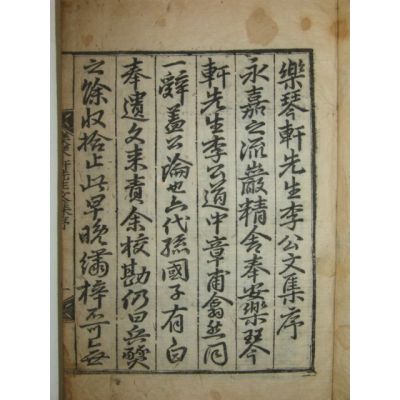 樂琴軒先生李公文集序
永嘉之流巖精舍奉安樂琴
軒先生李公道中章甫翕然同
一辭盖公論也六代孫國子有白
奉遺文来責余校勘仍曰兵燹
之餘収拾止此早晚繡梓不可無
軒先生文集序